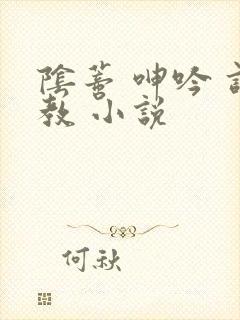 陰蒂 呻吟 訁
教 小說
何秋